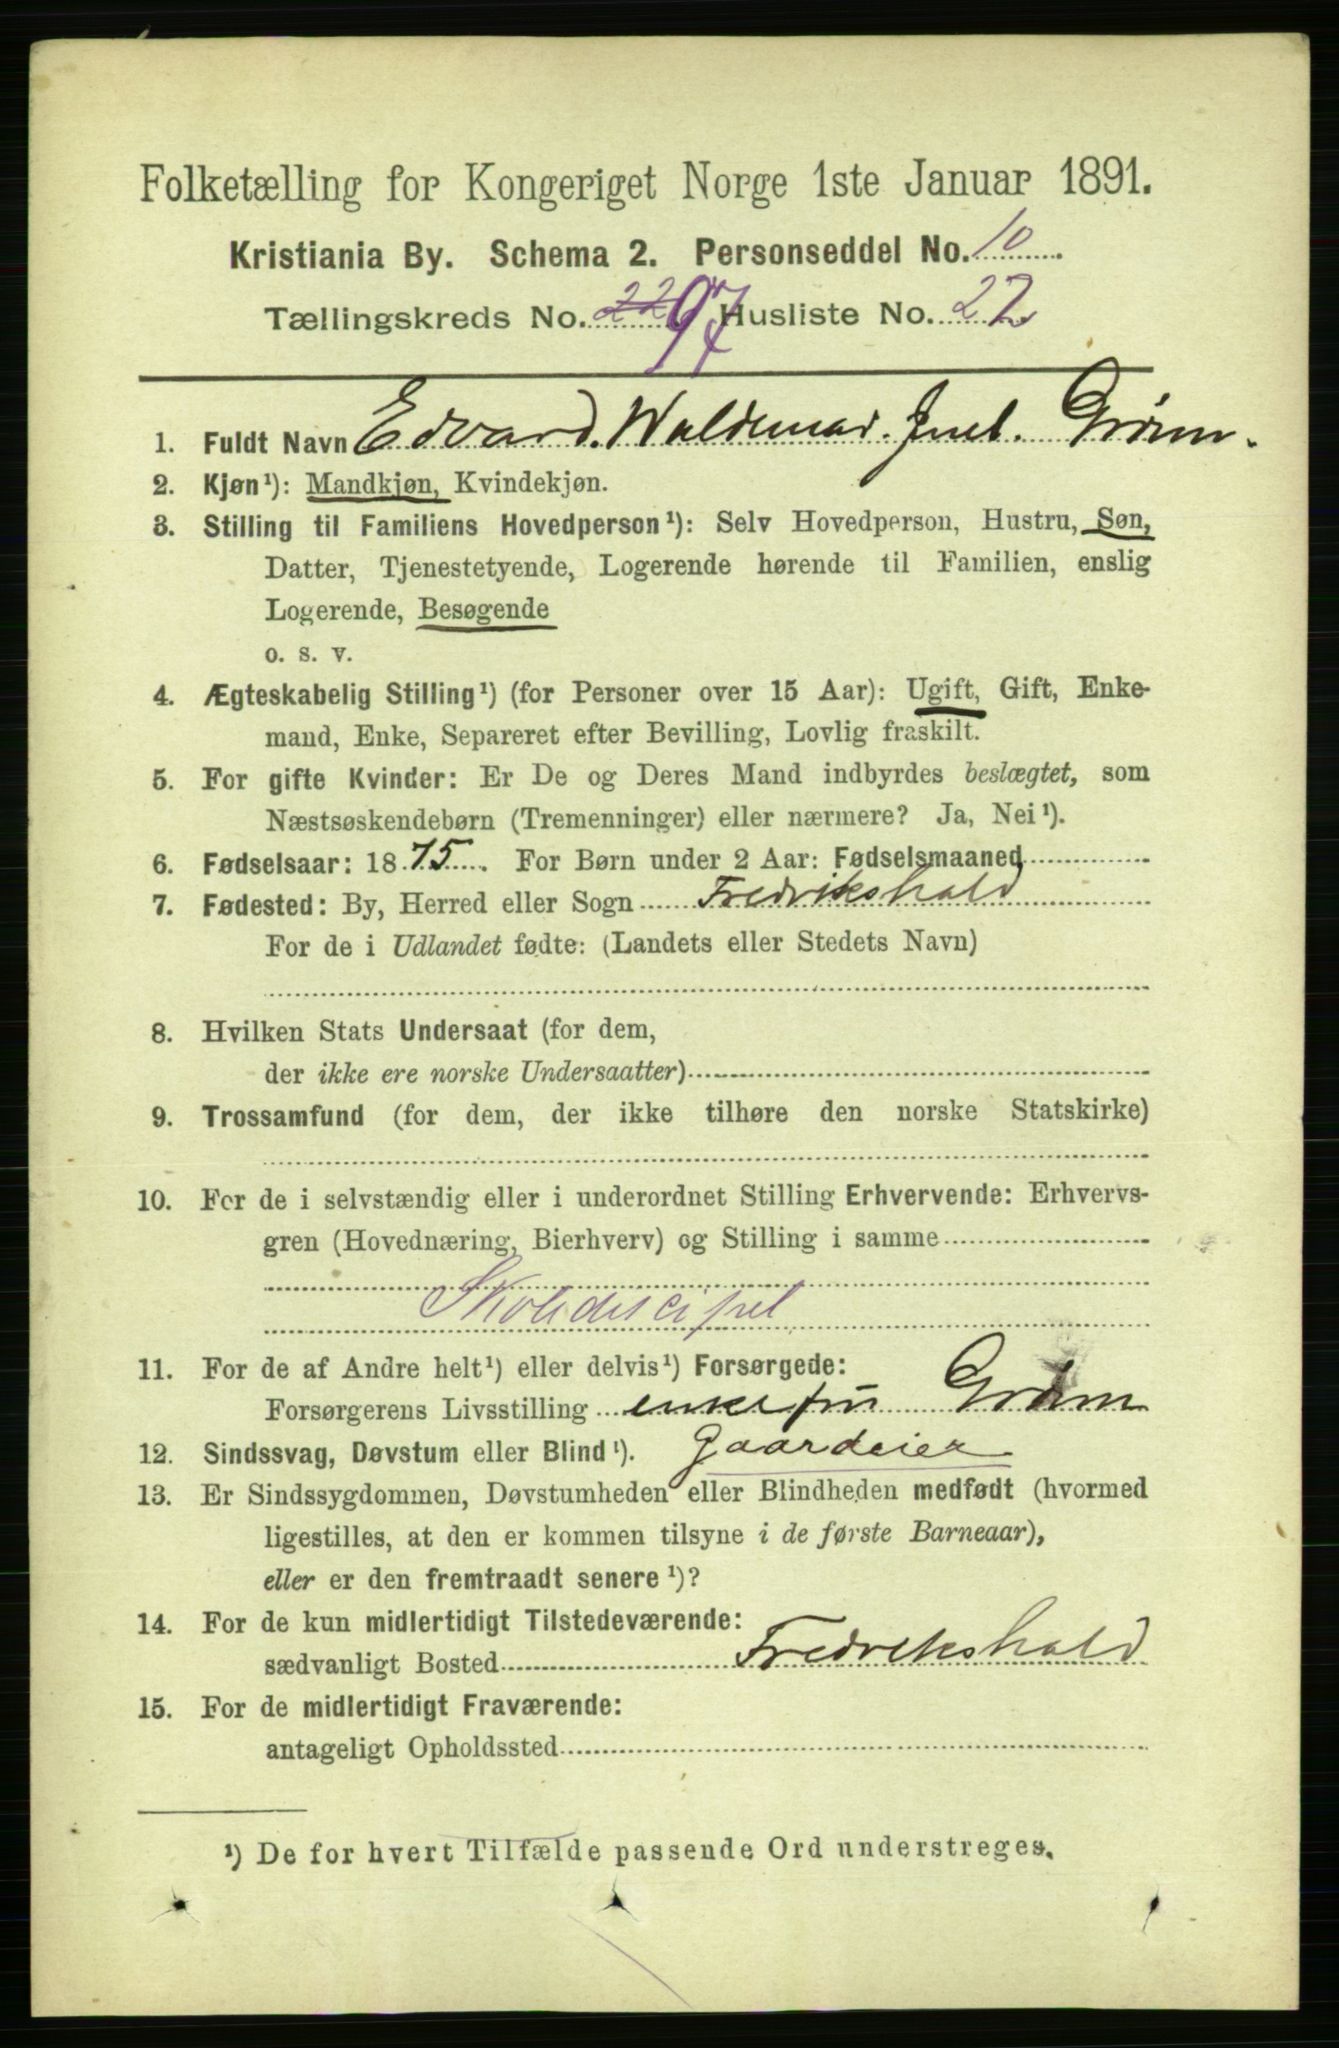 Folketælling for Kongeriget Norge 1ste Januar 1891.
Kristiania By. Schema 2. Personseddel No. 10.
Tællingskreds No. 22 97 Husliste No. 22
1. Fuldt Navn Edvard. Waldemar. Juel. Grøm.
2. Kjøn¹): Mandkjøn, Kvindekjøn.
3. Stilling til Familiens Hovedperson¹): Selv Hovedperson, Hustru, Søn,
Datter, Tjenestetyende, Logerende hørende til Familien, enslig
Logerende, Besøgende
o. s. v.
4. Ægteskabelig Stilling¹) (for Personer over 15 Aar): Ugift, Gift, Enke-
mand, Enke, Separeret efter Bevilling, Lovlig fraskilt.
5. For gifte Kvinder: Er De og Deres Mand indbyrdes beslægtet, som
Næstsøskendebørn (Tremenninger) eller nærmere? Ja, Nei¹).
6. Fødselsaar: 1875. For Børn under 2 Aar: Fødselsmaaned
7. Fødested: By, Herred eller Sogn Fredrikshald
For de i Udlandet fødte: (Landets eller Stedets Navn)
8. Hvilken Stats Undersaat (for dem,
der ikke ere norske Undersaatter)
9. Trossamfund (for dem, der ikke tilhøre den norske Statskirke)
10. For de i selvstændig eller i underordnet Stilling Erhvervende: Erhvervs-
gren (Hovednæring, Bierhverv) og Stilling i samme
Skolediscipel
11. For de af Andre helt¹) eller delvis¹) Forsørgede:
Forsørgerens Livsstilling enkefru Grøm
12. Sindssvag, Døvstum eller Blind¹). Gaardeier
13. Er Sindssygdommen, Døvstumheden eller Blindheden medfødt (hvormed
ligestilles, at den er kommen tilsyne i de første Barneaar),
eller er den fremtraadt senere¹)?
14. For de kun midlertidigt Tilstedeværende:
sædvanligt Bosted Fredrikshald
15. For de midlertidigt Fraværende:
antageligt Opholdssted
¹) De for hvert Tilfælde passende Ord understreges.